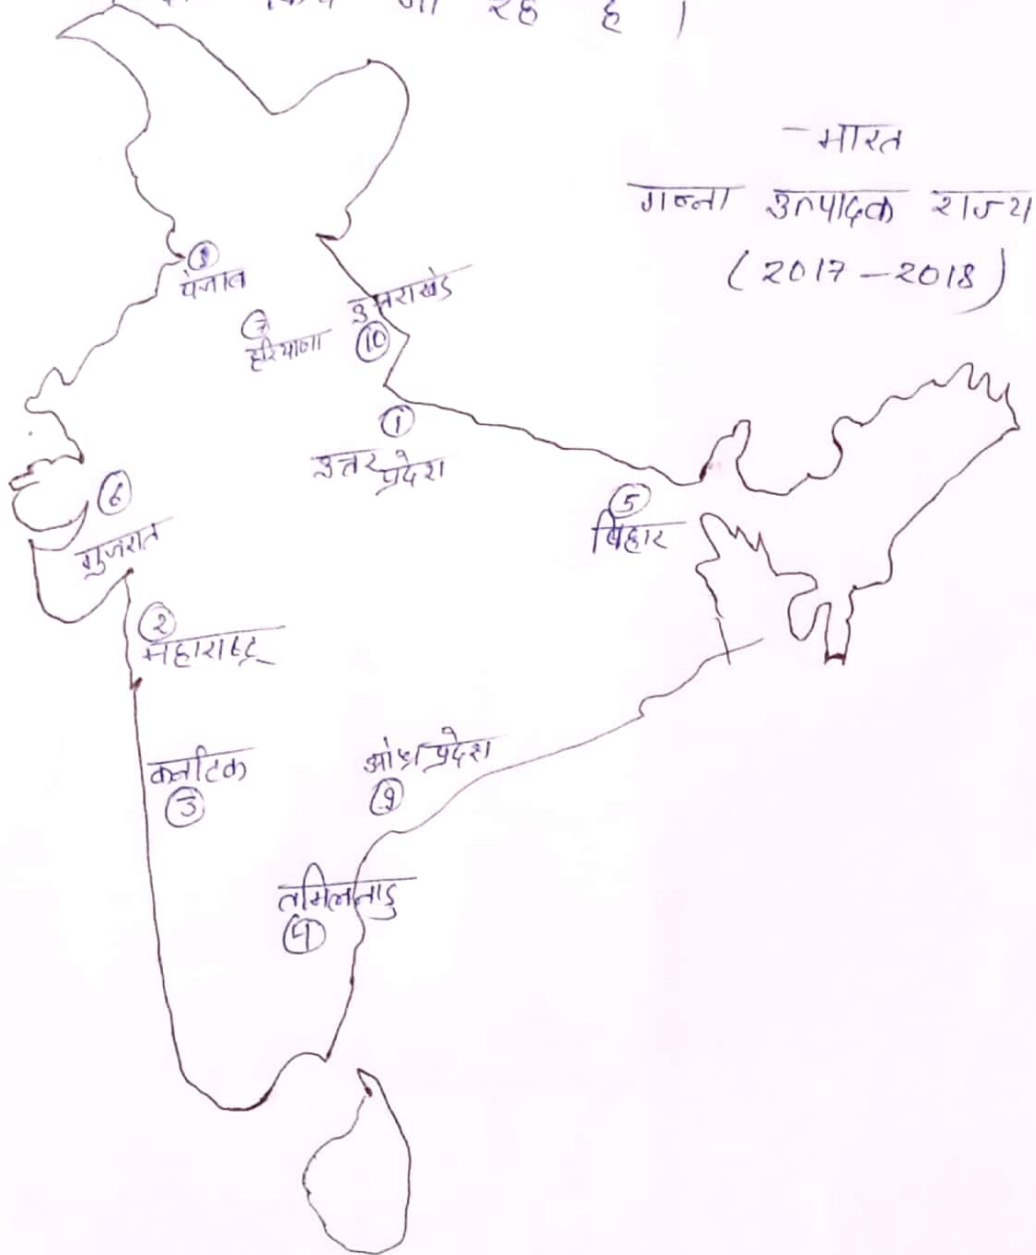 जा रहे है ।
भारत
गन्ना उत्पादक राज्य
(2017-2018)
8
पंजाब
उत्तराखंड
10
7
हरियाणा
1
उत्तर प्रदेश
6
गुजरात
5
बिहार
2
महाराष्ट्र
कर्नाटक
3
आंध्र प्रदेश
9
तमिलनाडु
4